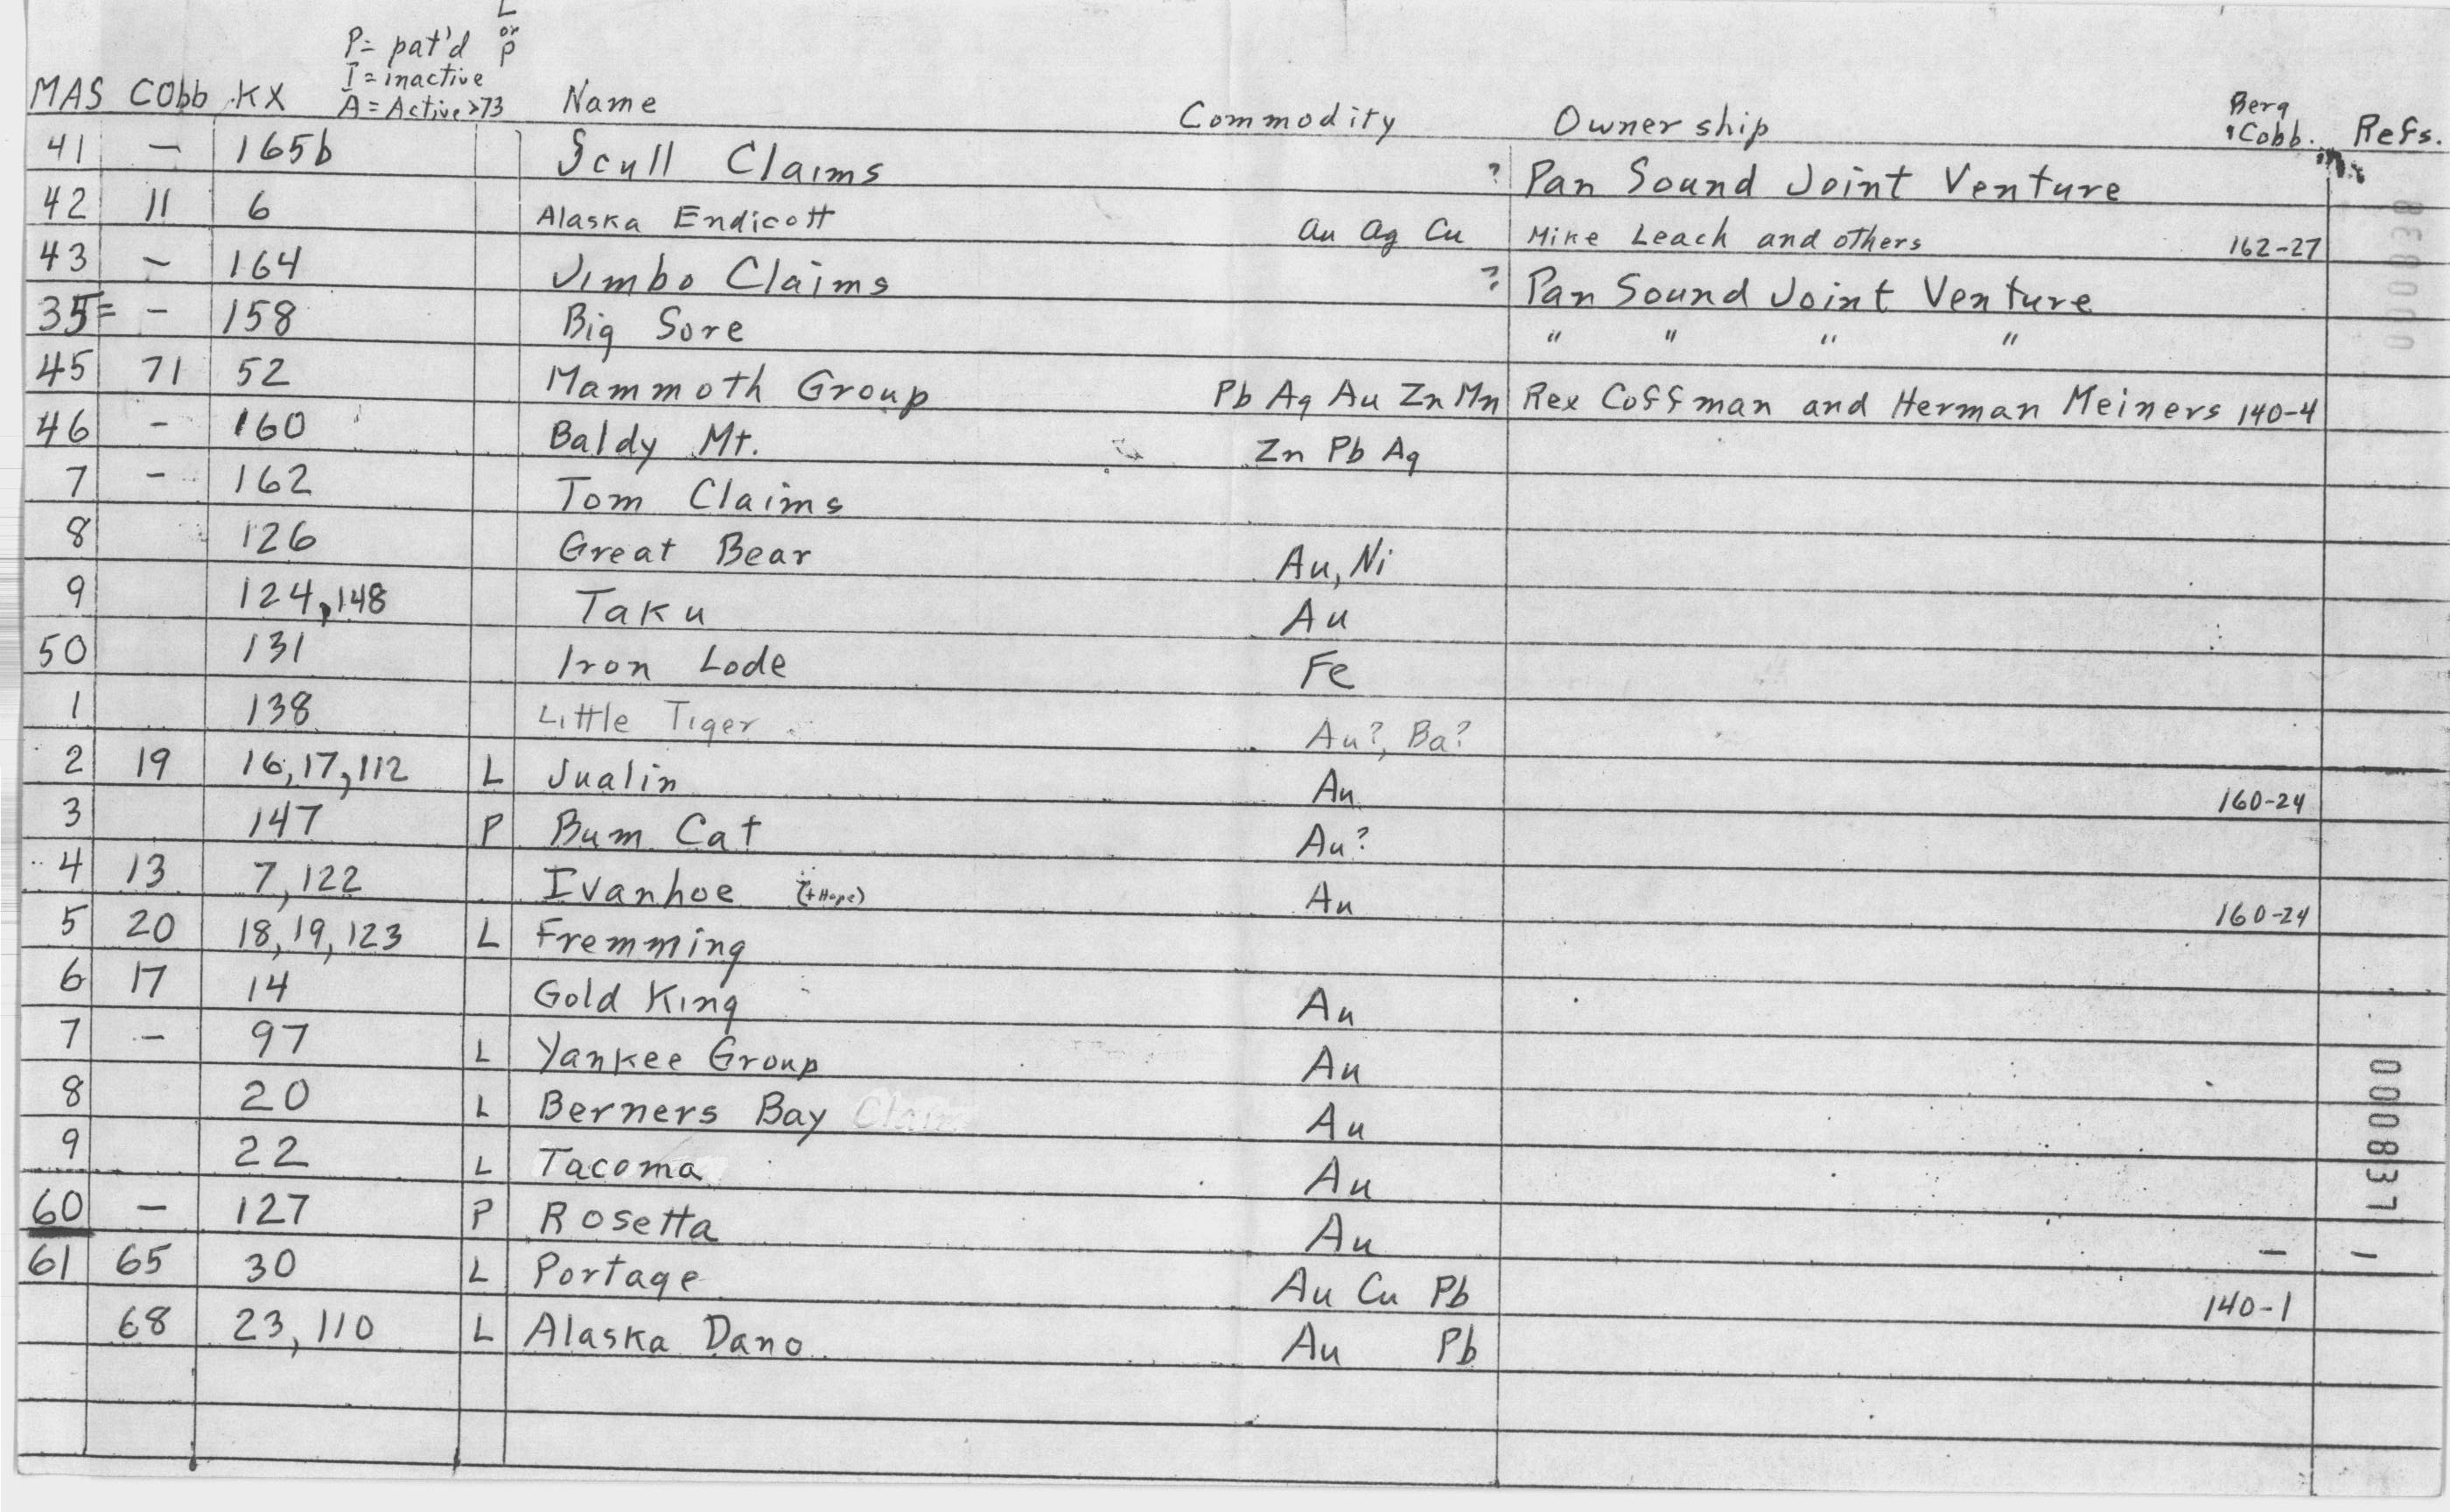 L
or
P
P= pat'd
I = inactive
A = Active >73
MAS Cobb KX Name Commodity Ownership Berg & Cobb. Refs.
41 — 165b Scull Claims ? Pan Sound Joint Venture
42 11 6 Alaska Endicott Au Ag Cu Mike Leach and others 162-27
43 — 164 Jimbo Claims ? Pan Sound Joint Venture
35= — 158 Big Sore " " " "
45 71 52 Mammoth Group Pb Ag Au Zn Mn Rex Coffman and Herman Meiners 140-4
46 — 160 Baldy Mt. Zn Pb Ag
7 — 162 Tom Claims
8 126 Great Bear Au, Ni
9 124, 148 Taku Au
50 131 Iron Lode Fe
1 138 Little Tiger Au?, Ba?
2 19 16, 17, 112 L Jualin Au 160-24
3 147 P Bum Cat Au?
4 13 7, 122 Ivanhoe (+Hope) Au 160-24
5 20 18, 19, 123 L Fremming
6 17 14 Gold King Au
7 — 97 L Yankee Group Au
8 20 L Berners Bay Claim Au
9 22 L Tacoma Au
60 — 127 P Rosetta Au — —
61 65 30 L Portage Au Cu Pb 140-1
68 23, 110 L Alaska Dano Au Pb
000837